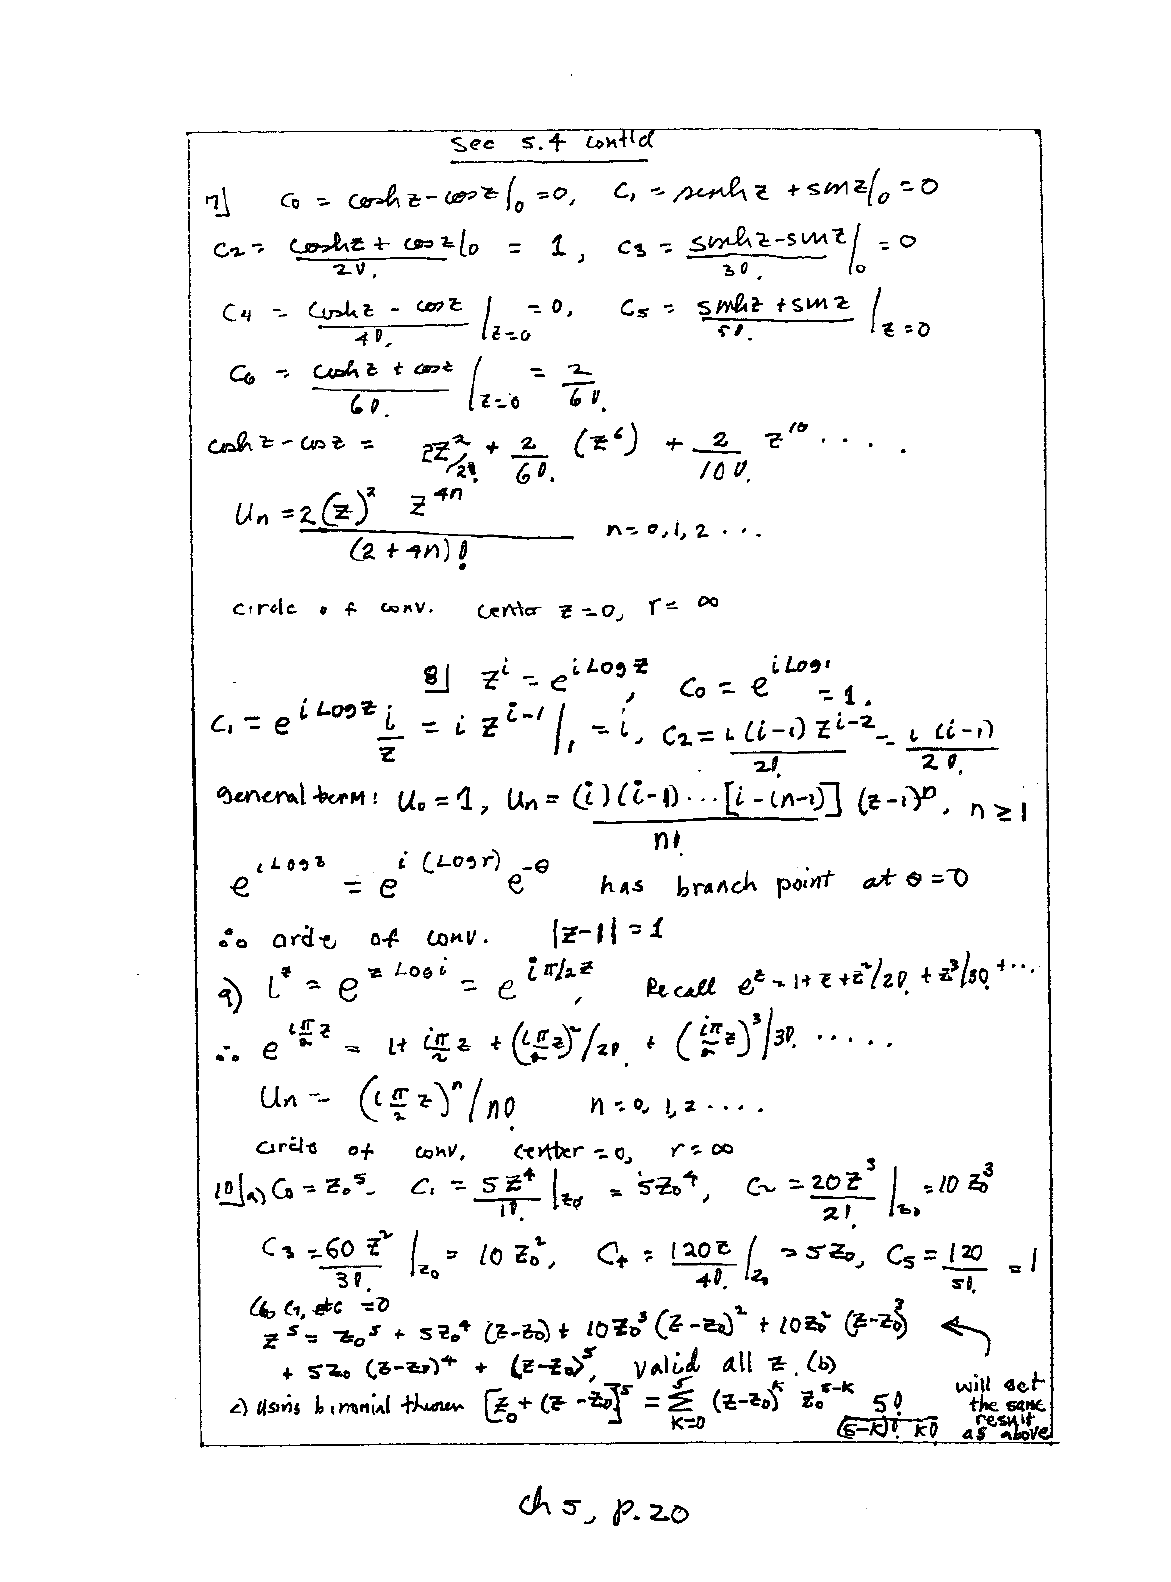 Sec 5.4 cont'd
7] C₀ = cosh z - cos z |₀ = 0, C₁ = sinh z + sin z |₀ = 0
C₂ = (cosh z + cos z)/2! |₀ = 1, C₃ = (sinh z - sin z)/3! |₀ = 0
C₄ = (cosh z - cos z)/4! |z=0 = 0, C₅ = (sinh z + sin z)/5! |z=0
C₆ = (cosh z + cos z)/6! |z=0 = 2/6!
cosh z - cos z = 2z²/2! + 2/6! (z⁶) + 2/10! z¹⁰ ...
Un = 2(z)² z⁴ⁿ/(2+4n)! n=0,1,2 ...
circle of conv. center z=0, r=∞
8] zⁱ = e^(i Log z), C₀ = e^(i Log 1) = 1.
C₁ = e^(i Log z) i/z = i z^(i-1) |₁ = i, C₂ = i(i-1) z^(i-2)/2! = i(i-1)/2!
general term: U₀ = 1, Un = (i)(i-1)...[i-(n-1)]/n! (z-1)ⁿ, n ≥ 1
e^(i Log z) = e^(i (Log r)) e^(-θ) has branch point at θ=0
∴ circle of conv. |z-1| = 1
9) i^z = e^(z Log i) = e^(i π/2 z), Recall e^z = 1 + z + z²/2! + z³/3! + ...
∴ e^(iπ/2 z) = 1 + iπ/2 z + (iπ/2 z)²/2! + (iπ/2 z)³/3! .....
Un = (i π/2 z)ⁿ/n! n=0,1,2....
circle of conv, center = 0, r=∞
10] a) C₀ = z₀⁵. C₁ = 5z⁴/1! |z₀ = 5z₀⁴, C₂ = 20z³/2! |z₀ = 10 z₀³
C₃ = 60 z²/3! |z₀ = 10 z₀², C₄ = 120z/4! |z₀ = 5z₀, C₅ = 120/5! = 1
C₆, C₇, etc = 0
z⁵ = z₀⁵ + 5z₀⁴ (z-z₀) + 10z₀³ (z-z₀)² + 10z₀² (z-z₀)³
+ 5z₀ (z-z₀)⁴ + (z-z₀)⁵, valid all z. (b)
c) Using binomial theorem [z₀ + (z-z₀)]⁵ = Σ k=0 5 (z-z₀)ᵏ z₀^(5-k) 5!/((5-k)! k!)
will get
the same
result
as above
ch 5, p.20